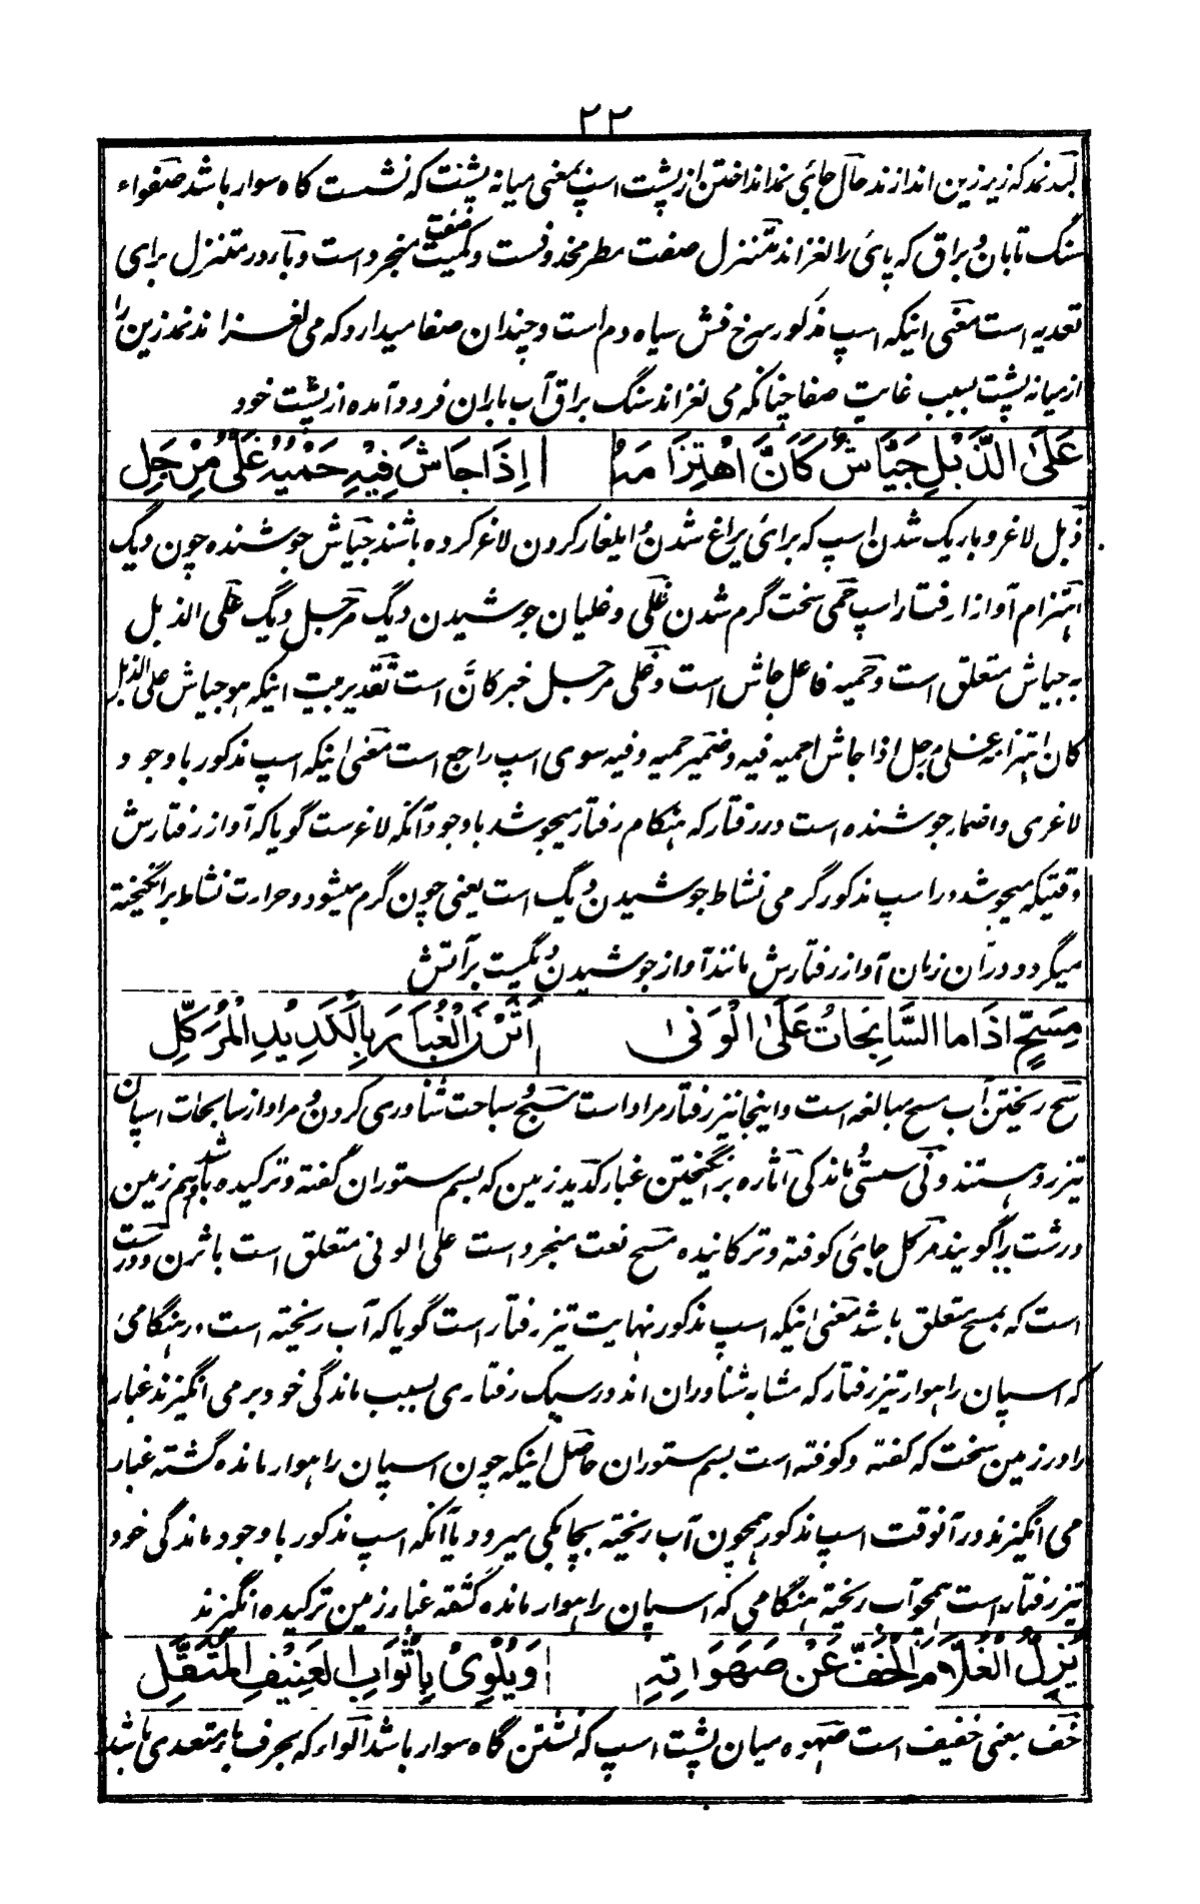 ۲۲
لبد نمد که زیر زین اندازند حال جائی نمد انداختن از پشت اسپ بمعنی میانه پشت که نشست گاه سوار باشد صفواء
سنگ تابان و براق که پای را لغزاند متنزل صفت مطر محذوفست و کمیت صفت منجرد است و با در متنزل برای
تعدیه است معنی اینکه اسپ مذکور سرخ فش سیاه دم است و چندان صفا میدارد که می لغزاند نمد زین را
از میانه پشت بسبب غایت صفا چنانکه می لغزاند سنگ براق آب باران فرود آمده از پشت خود
عَلَی الذَّبْلِ جَیَّاشٌ کَاَنَّ اهْتِزَامَهُ اِذَا جَاشَ فِیْهِ حَمْیُهُ غَلْیُ مِرْجَلِ
ذبل لاغر و باریک شدن اسپ که برای یراغ شدن و ایلغار کردن لاغر کرده باشند جیاش جوشنده چون دیگ
اهتزام آواز رفتار اسپ حمی سخت گرم شدن غلی و غلیان جوشیدن دیگ مرجل دیگ علی الذبل
به جیاش متعلق است و حمیه فاعل جاش است و غلی مرجل خبر کان است تقدیر بیت اینکه هو جیاش علی الذبل
کان اهتزامه غلی مرجل اذا جاش حمیه فیه و ضمیر حمیه و فیه سوی اسپ راجع است معنی اینکه اسپ مذکور با وجود
لاغری و اضمار جوشنده است در رفتار که هنگام رفتار میجوشد با وجود آنکه لاغرست گویا که آواز رفتارش
وقتیکه میجوشد در اسپ مذکور گرمی نشاط جوشیدن دیگ است یعنی چون گرم میشود و حرارت نشاط برانگیخته
میگردد در آن زمان آواز رفتارش مانند آواز جوشیدن دیگست بر آتش
مِسَحٍّ اِذَا ما السَّابِحَاتُ عَلَی الْوَنیٰ اَثَرْنَ الْغُبَارَ بِالْکَدِیْدِ الْمُرَکَّلِ
سح ریختن آب مسح مبالغه است و اینجا تیز رفتار مراد است سبح سباحت شناوری کردن و مراد از سابحات اسپان
تیز رو هستند ونی سستی ماندگی اثاره برانگیختن غبار کدید زمین که بسم ستوران کفته و ترکیده باشد و هم زمین
درشت را گویند مرکل جای کوفته و ترکانیده مسح نعت منجرد است علی الونی متعلق است باثرن و درست
است که بمسح متعلق باشد معنی اینکه اسپ مذکور نهایت تیز رفتار است گویا که آب ریخته است در هنگامی
که اسپان راهوار تیز رفتار که مشابه شناوران اند در سبک رفتاری بسبب ماندگی خود بر می انگیزند غبار
را در زمین سخت که کفته و کوفته است بسم ستوران حاصل اینکه چون اسپان راهوار مانده گشته غبار
می انگیزند در آنوقت اسپ مذکور همچون آب ریخته بچابکی میرود یا آنکه اسپ مذکور با وجود ماندگی خود
تیز رفتار است همچو آب ریخته هنگامی که اسپان راهوار مانده گشته غبار زمین ترکیده انگیزند
یُزِلُّ الْغُلَامَ الْخِفَّ عَنْ صَهَوَاتِهٖ وَیُلْوِیْ بِاَثْوَابِ العَنِیْفِ الْمُثَقَّلِ
خف بمعنی خفیف است صهوه میان پشت اسپ که نشستن گاه سوار باشد الواء که بحرف باء متعدی باشد